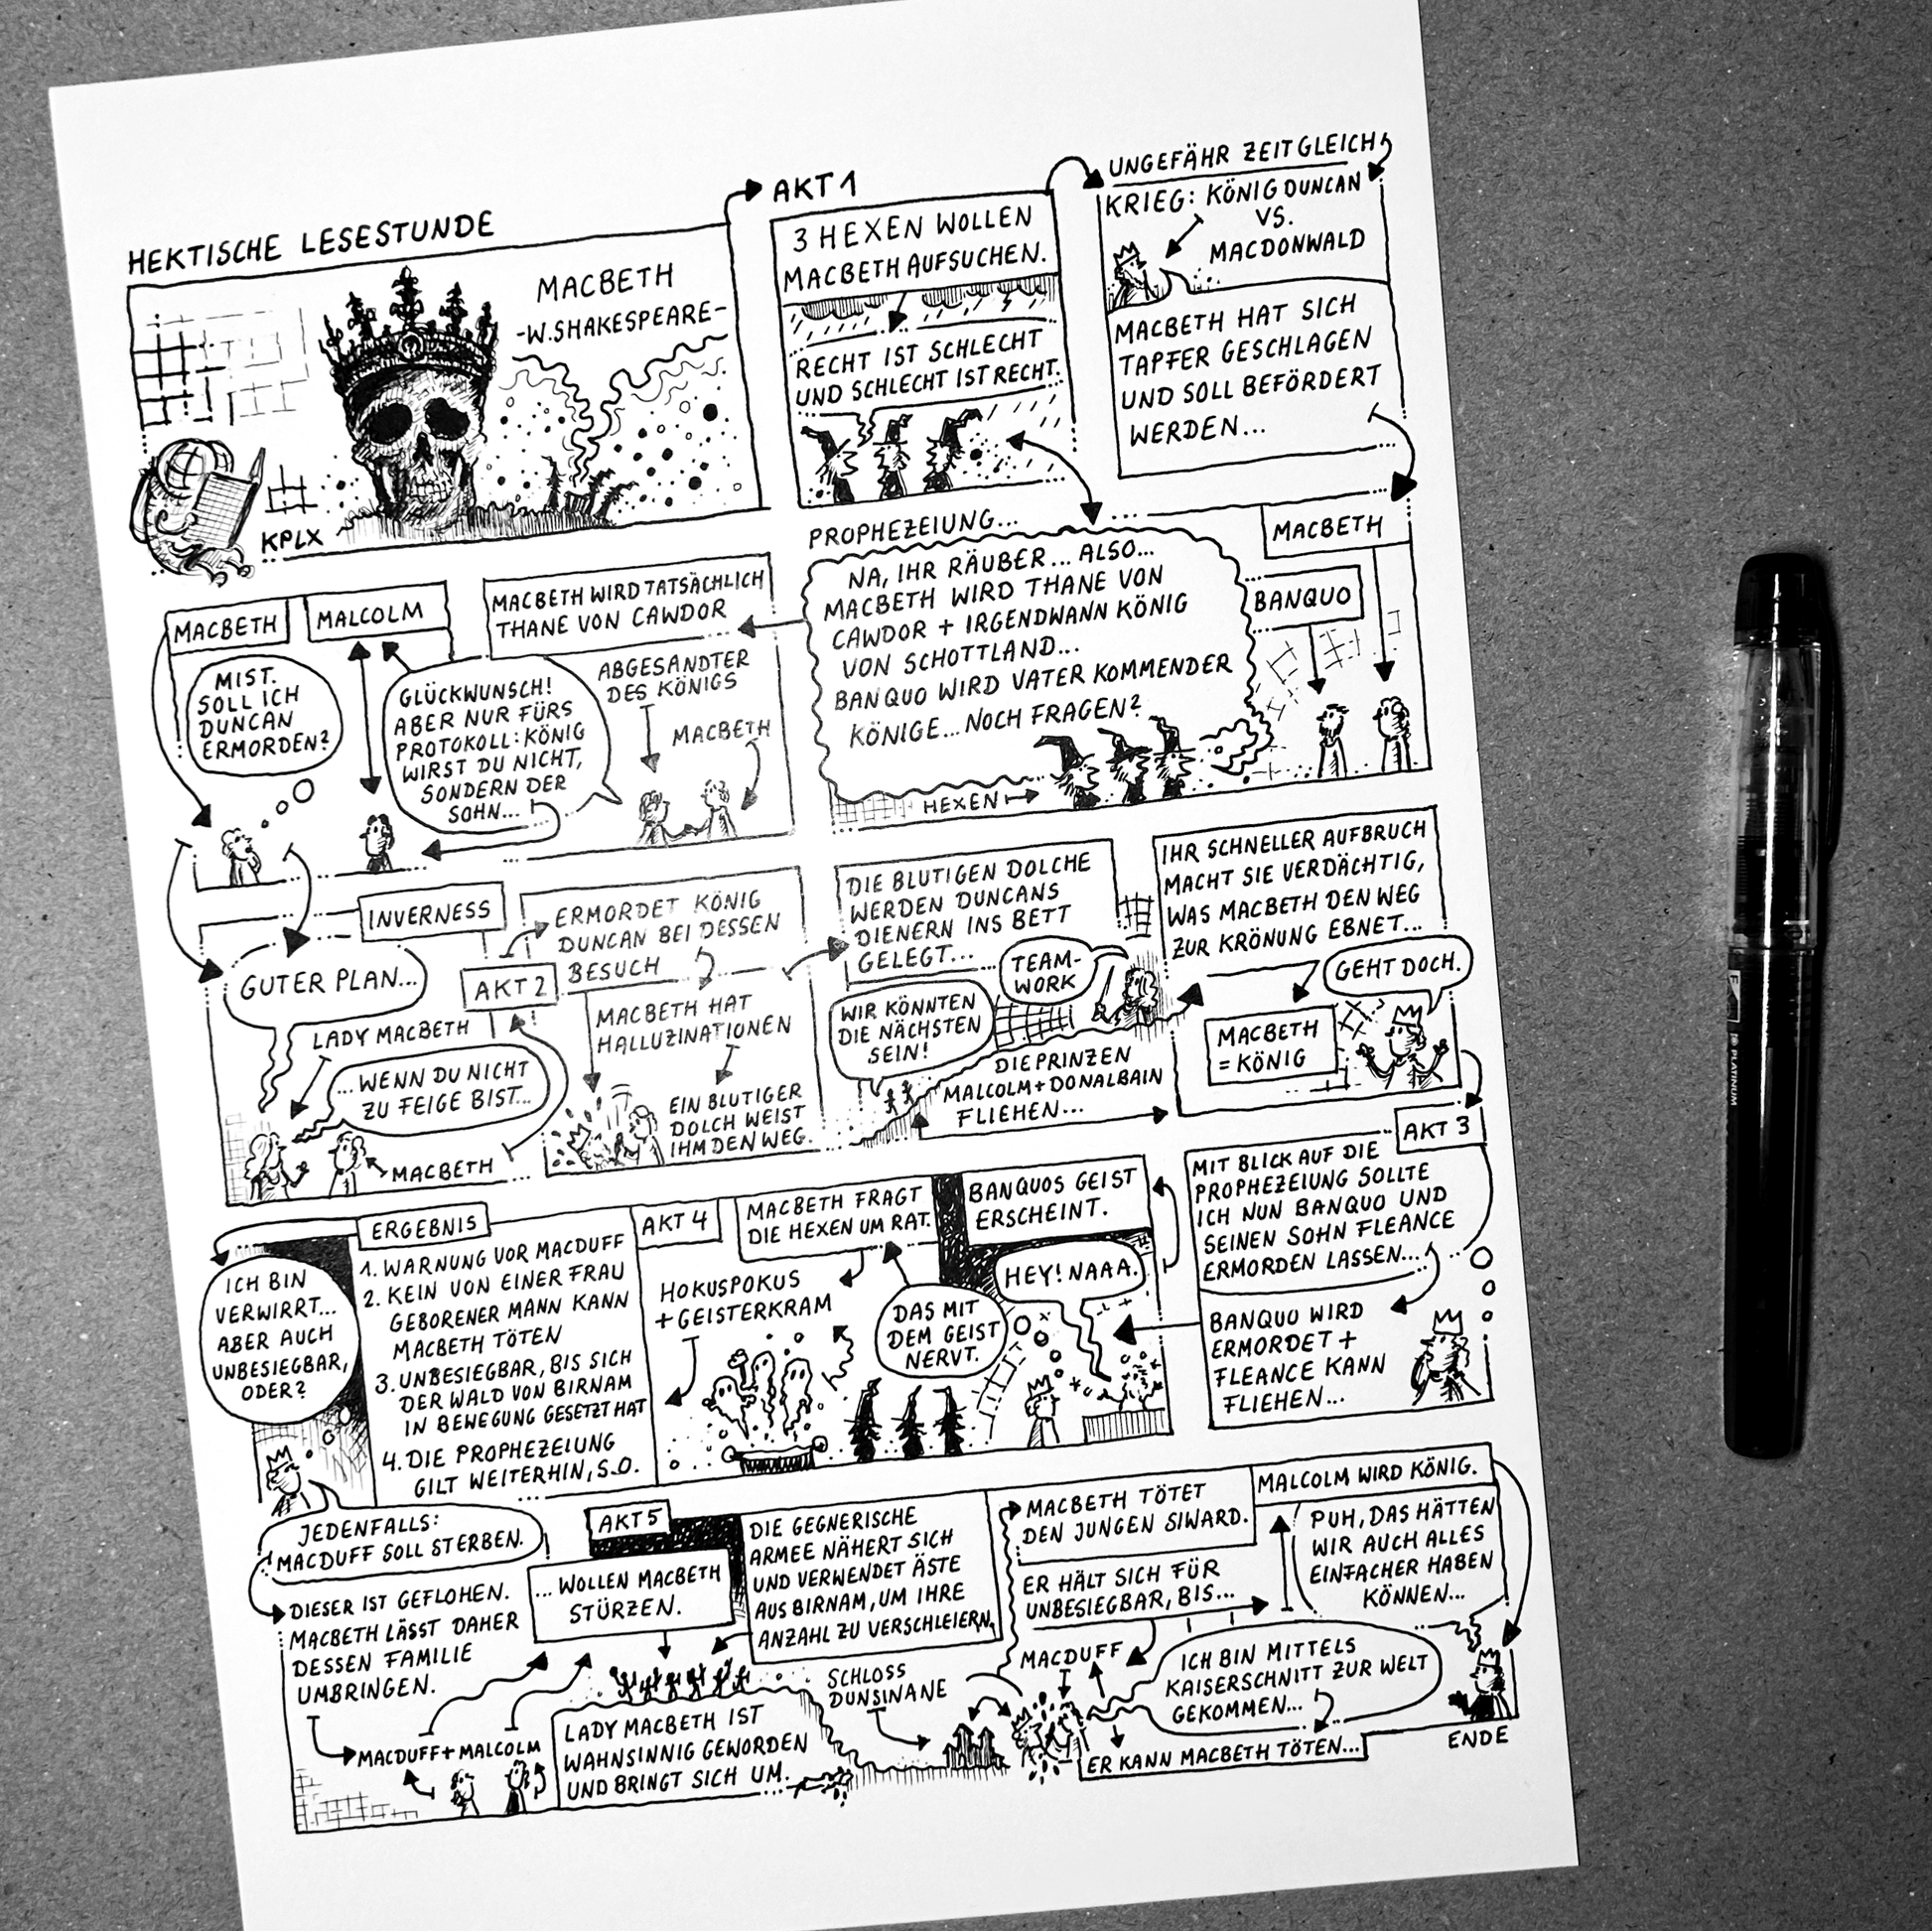 HEKTISCHE LESESTUNDE
MACBETH
-W.SHAKESPEARE-
KPLX
AKT 1
3 HEXEN WOLLEN
MACBETH AUFSUCHEN.
RECHT IST SCHLECHT
UND SCHLECHT IST RECHT.
UNGEFÄHR ZEITGLEICH
KRIEG: KÖNIG DUNCAN
VS.
MACDONWALD
MACBETH HAT SICH
TAPFER GESCHLAGEN
UND SOLL BEFÖRDERT
WERDEN...
MACBETH
BANQUO
PROPHEZEIUNG...
NA, IHR RÄUBER... ALSO...
MACBETH WIRD THANE VON
CAWDOR + IRGENDWANN KÖNIG
VON SCHOTTLAND...
BANQUO WIRD VATER KOMMENDER
KÖNIGE...NOCH FRAGEN?
HEXEN
MACBETH WIRD TATSÄCHLICH
THANE VON CAWDOR
ABGESANDTER
DES KÖNIGS
MACBETH
GLÜCKWUNSCH!
ABER NUR FÜRS
PROTOKOLL: KÖNIG
WIRST DU NICHT,
SONDERN DER
SOHN...
MALCOLM
MACBETH
MIST.
SOLL ICH
DUNCAN
ERMORDEN?
INVERNESS
GUTER PLAN...
LADY MACBETH
...WENN DU NICHT
ZU FEIGE BIST...
MACBETH
AKT 2
ERMORDET KÖNIG
DUNCAN BEI DESSEN
BESUCH
MACBETH HAT
HALLUZINATIONEN
EIN BLUTIGER
DOLCH WEIST
IHM DEN WEG.
DIE BLUTIGEN DOLCHE
WERDEN DUNCANS
DIENERN INS BETT
GELEGT...
TEAM-
WORK
WIR KÖNNTEN
DIE NÄCHSTEN
SEIN!
DIE PRINZEN
MALCOLM+DONALBAIN
FLIEHEN...
IHR SCHNELLER AUFBRUCH
MACHT SIE VERDÄCHTIG,
WAS MACBETH DEN WEG
ZUR KRÖNUNG EBNET...
GEHT DOCH.
MACBETH
= KÖNIG
AKT 3
MIT BLICK AUF DIE
PROPHEZEIUNG SOLLTE
ICH NUN BANQUO UND
SEINEN SOHN FLEANCE
ERMORDEN LASSEN...
BANQUO WIRD
ERMORDET +
FLEANCE KANN
FLIEHEN...
BANQUOS GEIST
ERSCHEINT.
HEY! NAAA.
DAS MIT
DEM GEIST
NERVT.
AKT 4
MACBETH FRAGT
DIE HEXEN UM RAT.
HOKUSPOKUS
+ GEISTERKRAM
ERGEBNIS
1. WARNUNG VOR MACDUFF
2. KEIN VON EINER FRAU
GEBORENER MANN KANN
MACBETH TÖTEN
3. UNBESIEGBAR, BIS SICH
DER WALD VON BIRNAM
IN BEWEGUNG GESETZT HAT
4. DIE PROPHEZEIUNG
GILT WEITERHIN, S.O.
ICH BIN
VERWIRRT...
ABER AUCH
UNBESIEGBAR,
ODER?
JEDENFALLS:
MACDUFF SOLL STERBEN.
DIESER IST GEFLOHEN.
MACBETH LÄSST DAHER
DESSEN FAMILIE
UMBRINGEN.
MACDUFF+MALCOLM
AKT 5
... WOLLEN MACBETH
STÜRZEN.
DIE GEGNERISCHE
ARMEE NÄHERT SICH
UND VERWENDET ÄSTE
AUS BIRNAM, UM IHRE
ANZAHL ZU VERSCHLEIERN.
LADY MACBETH IST
WAHNSINNIG GEWORDEN
UND BRINGT SICH UM.
SCHLOSS
DUNSINANE
MACBETH TÖTET
DEN JUNGEN SIWARD.
ER HÄLT SICH FÜR
UNBESIEGBAR, BIS...
MACDUFF
ICH BIN MITTELS
KAISERSCHNITT ZUR WELT
GEKOMMEN...
ER KANN MACBETH TÖTEN...
MALCOLM WIRD KÖNIG.
PUH, DAS HÄTTEN
WIR AUCH ALLES
EINFACHER HABEN
KÖNNEN...
ENDE
F
PLATINUM